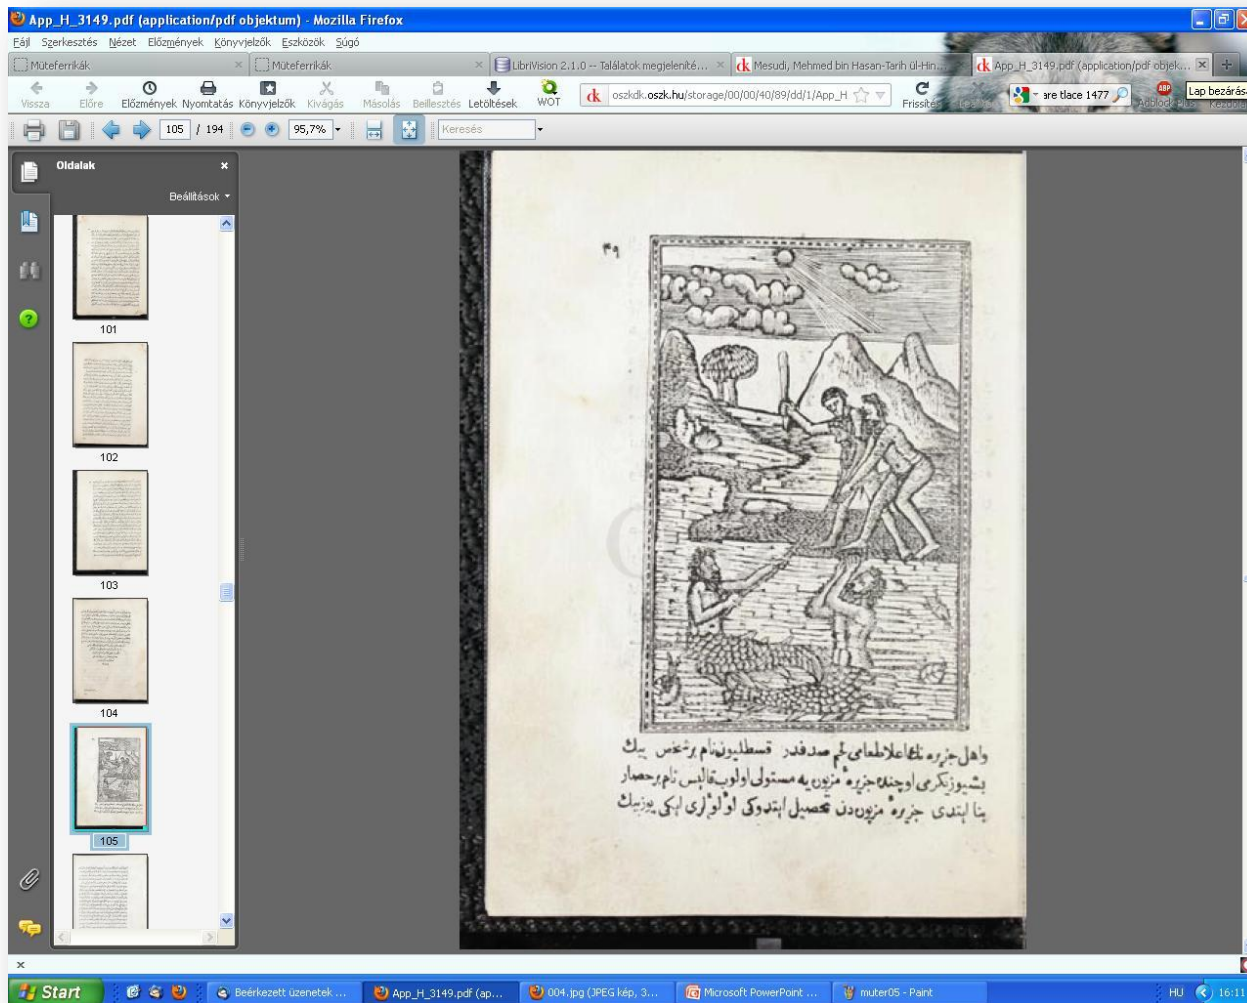 App_H_3149.pdf (application/pdf objektum) - Mozilla Firefox
Fájl Szerkesztés Nézet Előzmények Könyvjelzők Eszközök Súgó
Müteferrikák
Müteferrikák
LibriVision 2.1.0 -- Találatok megjeleníté...
Mesudi, Mehmed bin Hasan-Tarih ül-Hin...
App_H_3149.pdf (application/pdf objek...
Vissza Előre Előzmények Nyomtatás Könyvjelzők Kivágás Másolás Beillesztés Letöltések WOT
oszkdk.oszk.hu/storage/00/00/40/89/dd/1/App_H
Frissítés
are tlace 1477
Adblock Plus
Lap bezárás
105 / 194
95,7%
Keresés
Oldalak
Beállítások
101
102
103
104
105
٤٩
واهل جزیره نك اعلا طعامی لحم صدفدر قسطلیون نام بر شخص بیك
بشیوز یكرمی اوچنده جزیرهٔ مزبون یه مستولی اولوب قالیس نام بر حصار
بنا ایتدی جزیرهٔ مزبون دن تحصیل ایتدوكی اولولری ایكی یوز بیك
Start
Beérkezett üzenetek ...
App_H_3149.pdf (ap...
004.jpg (JPEG kép, 3...
Microsoft PowerPoint ...
muter05 - Paint
HU
16:11